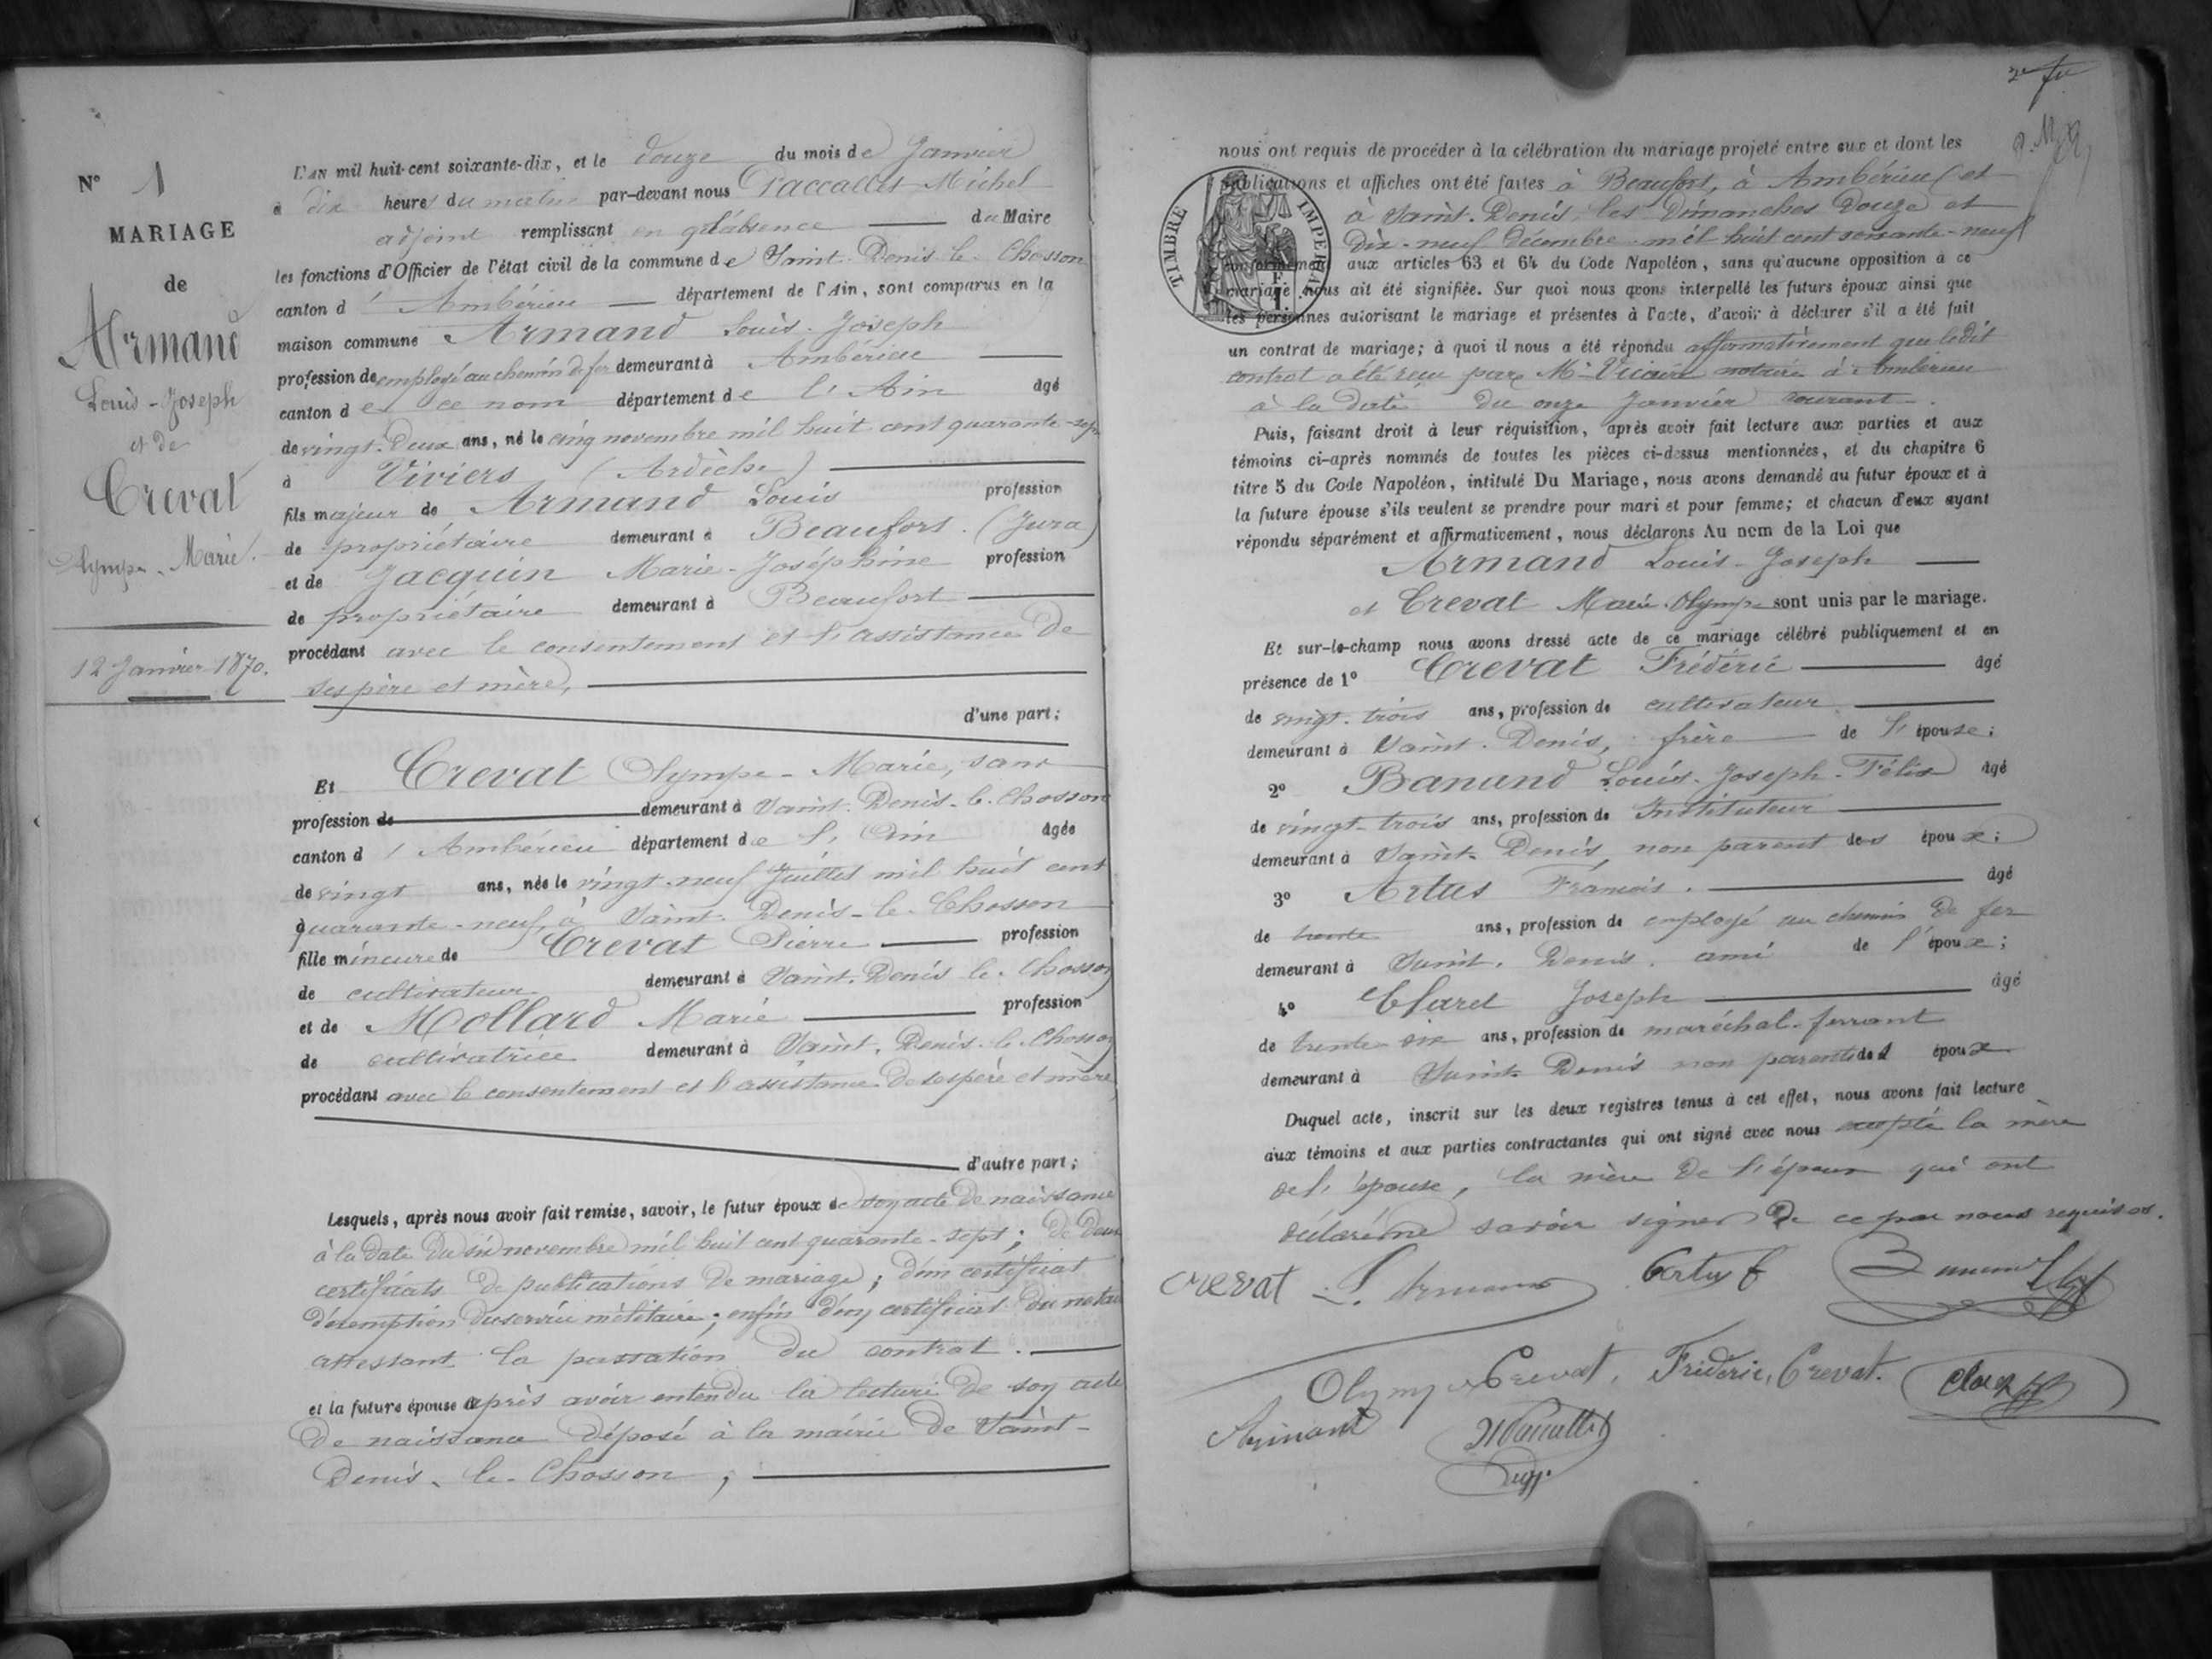 N° 1
MARIAGE
de
Armand
Louis-Joseph
et de
Crevat
Olympe-Marie.
12 Janvier 1870.
L'AN mil huit-cent soixante-dix, et le douze du mois de Janvier
à dix heures du matin par-devant nous Paccallet Michel
adjoint remplissant en l'absence du Maire
les fonctions d'Officier de l'état civil de la commune de Saint-Denis-le-Chosson
canton d'Ambérieu département de l'Ain, sont comparus en la
maison commune Armand Louis-Joseph
profession de employé au chemin de fer demeurant à Ambérieu
canton de ce nom département de l'Ain âgé
de vingt-deux ans, né le cinq novembre mil huit cent quarante-sept
à Viviers (Ardèche)
fils majeur de Armand Louis profession
de propriétaire demeurant à Beaufort (Jura)
et de Jacquin Marie-Joséphine profession
de propriétaire demeurant à Beaufort
procédant avec le consentement et l'assistance de
ses père et mère,
d'une part;
Et Crevat Olympe-Marie, sans
profession de demeurant à Saint-Denis-le-Chosson
canton d'Ambérieu département de l'Ain âgée
de vingt ans, née le vingt-neuf Juillet mil huit cent
quarante-neuf, à Saint-Denis-le-Chosson
fille mineure de Crevat Pierre profession
de cultivateur demeurant à Saint-Denis-le-Chosson
et de Mollard Marie profession
de cultivatrice demeurant à Saint-Denis-le-Chosson
procédant avec le consentement et l'assistance de ses père et mère,
d'autre part;
Lesquels, après nous avoir fait remise, savoir, le futur époux de son acte de naissance
à la date du six novembre mil huit cent quarante-sept; de deux
certificats de publications de mariage; d'un certificat
d'exemption du service militaire; enfin d'un certificat du notaire
attestant la passation du contrat.
et la future épouse après avoir entendu la lecture de son acte
de naissance déposé à la mairie de Saint-
Denis-le-Chosson;
2e
nous ont requis de procéder à la célébration du mariage projeté entre eux et dont les
publications et affiches ont été faites à Beaufort, à Ambérieu et
à Saint-Denis, les Dimanches douze et
dix-neuf décembre mil huit cent soixante-neuf
conformément aux articles 63 et 64 du Code Napoléon, sans qu'aucune opposition à ce
mariage nous ait été signifiée. Sur quoi nous avons interpellé les futurs époux ainsi que
les personnes autorisant le mariage et présentes à l'acte, d'avoir à déclarer s'il a été fait
un contrat de mariage; à quoi il nous a été répondu affirmativement que ledit
contrat a été reçu par Me Vicaire notaire à Ambérieu
à la date du onze Janvier courant.
TIMBRE IMPERIAL
1 F
Puis, faisant droit à leur réquisition, après avoir fait lecture aux parties et aux
témoins ci-après nommés de toutes les pièces ci-dessus mentionnées, et du chapitre 6
titre 5 du Code Napoléon, intitulé Du Mariage, nous avons demandé au futur époux et à
la future épouse s'ils veulent se prendre pour mari et pour femme; et chacun d'eux ayant
répondu séparément et affirmativement, nous déclarons Au nom de la Loi que
Armand Louis-Joseph
et Crevat Marie-Olympe sont unis par le mariage.
Et sur-le-champ nous avons dressé acte de ce mariage célébré publiquement et en
présence de 1° Crevat Frédéric âgé
de vingt-trois ans, profession de cultivateur
demeurant à Saint-Denis, frère de l'épouse;
2° Banund Louis-Joseph-Félix âgé
de vingt-trois ans, profession de Instituteur
demeurant à Saint-Denis, non parent des époux;
3° Artus François. âgé
de trente ans, profession de employé au chemin de fer
demeurant à Saint-Denis. ami de l'époux;
4° Claret Joseph âgé
de trente-six ans, profession de maréchal-ferrant
demeurant à Saint-Denis non parent des époux
Duquel acte, inscrit sur les deux registres tenus à cet effet, nous avons fait lecture
aux témoins et aux parties contractantes qui ont signé avec nous excepté la mère
de l'épouse, la mère de l'époux qui ont
déclaré ne savoir signer de ce par nous requises.
crevat L. Armand Artus f
Olympe Crevat, Frédéric, Crevat. Claret
Armand M Paccallet